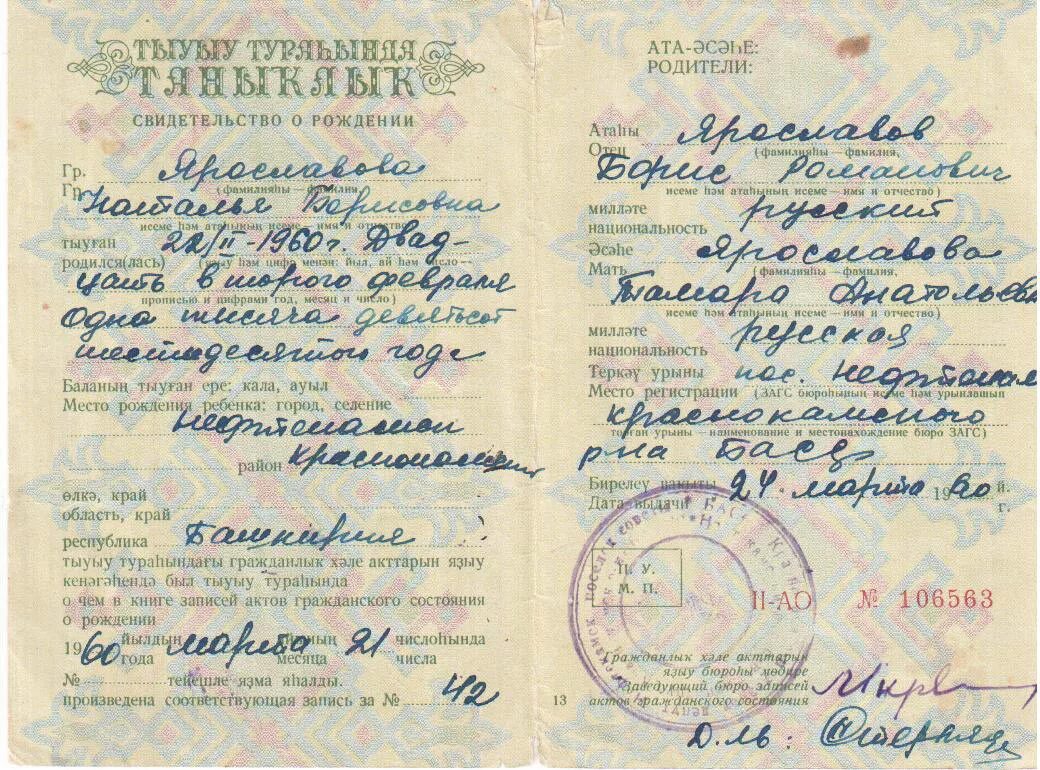 ТЫУЫУ ТУРАҺЫНДА
ТАНЫКЛЫК
СВИДЕТЕЛЬСТВО О РОЖДЕНИИ
Гр. Ярославова
(фамилияһы — фамилия,
Гр. Наталья Борисовна
исеме һәм атаһының исеме — имя и отчество)
тыуған 22/II-1960 г. Двад-
родился(лась) (языу һәм цифр менән: йыл, ай һәм число —
цать второго февраля
прописью и цифрами год, месяц и число)
одна тысяча девятьсот
шестидесятого года
Баланың тыуған ере: кала, ауыл
Место рождения ребенка: город, селение
район
өлкә, край
область, край
республика Башкирия
тыуыу тураһындағы гражданлык хәле акттарын яҙыу
кенәгәһендә был тыуыу тураһында
о чем в книге записей актов гражданского состояния
о рождении
1960 йылдың марта айының 21 числоһында
года месяца числа
№ тейешле яҙма яһалды.
произведена соответствующая запись за № 42
АТА-ӘСӘҺЕ:
РОДИТЕЛИ:
Атаһы
Отец Ярославов
(фамилияһы — фамилия,
Борис Романович
исеме һәм атаһының исеме — имя и отчество)
милләте русский
национальность
Әсәһе Ярославова
Мать (фамилияһы — фамилия,
Тамара Анатольевна
исеме һәм атаһының исеме — имя и отчество)
милләте русская
национальность
Теркәү урыны пос.
Место регистрации (ЗАГС бюроһының исеме һәм урынлашып
Краснокамского
торған урыны — наименование и местонахождение бюро ЗАГС)
р-на БАССР
Биреләү вакыты 24 марта 1960 й.
Дата выдачи г.
П. У.
М. П.
II-АО № 106563
Гражданлык хәле акттарын
яҙыу бюроһы мөдире
Заведующий бюро записей
13 актов гражданского состояния
Д-ль: